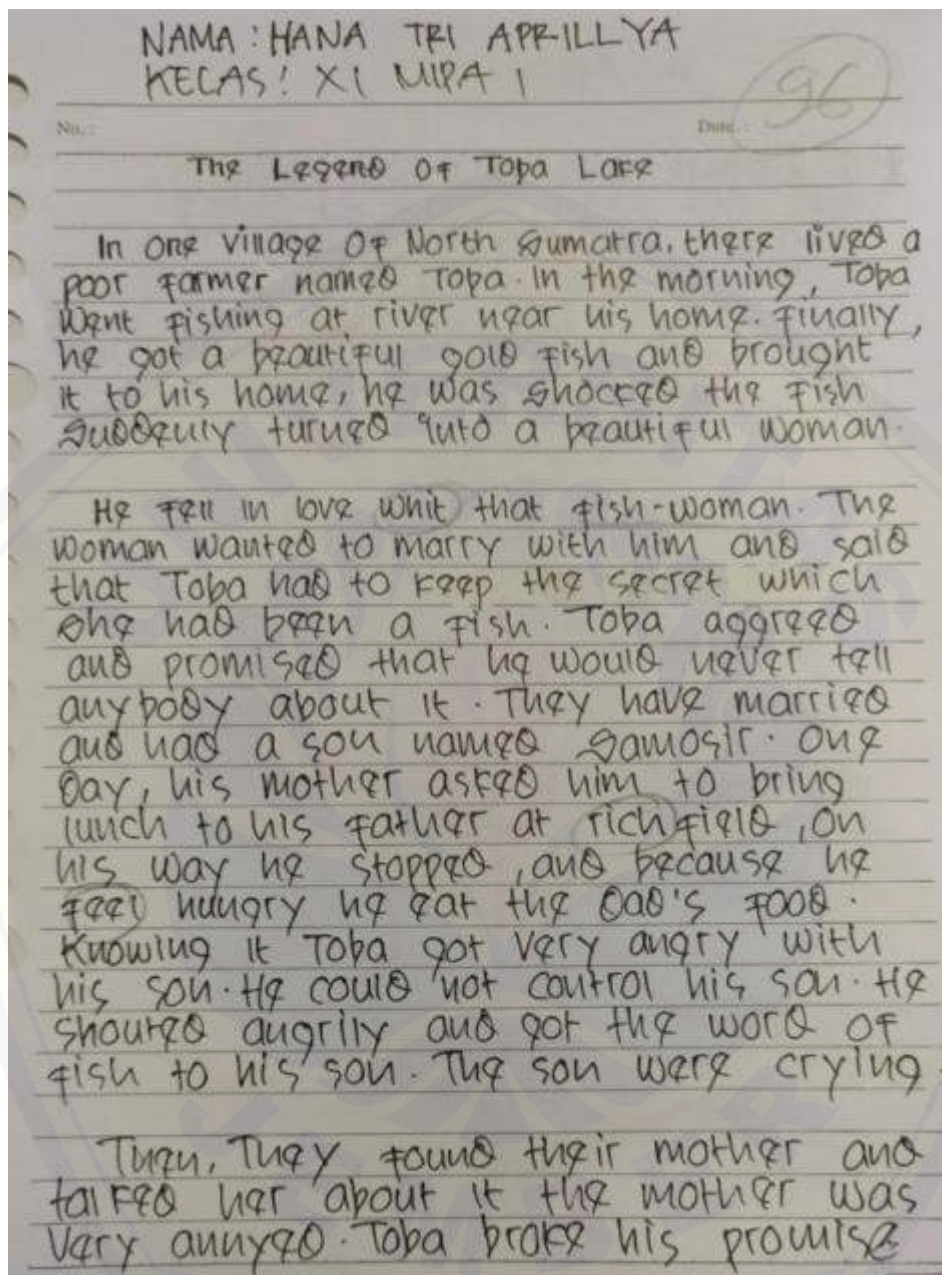 NAMA : HANA TRI APRILLYA
KELAS : XI MIPA 1
96
No.:
Date.:
The Legend Of Toba Lake
In one village Of North Sumatra. there lived a
poor farmer named Toba. In the morning, Toba
Went fishing at river near his home. finally,
he got a beautiful gold fish and brought
it to his home, he was shocked the fish
suddenly turned into a beautiful woman.
He fell in love whit that fish-woman. The
woman wanted to marry with him and said
that Toba had to keep the secret which
she had been a fish. Toba aggreed
and promised that he would never tell
anybody about it. They have married
and had a son named Samosir. One
day, his mother asked him to bring
lunch to his father at rich field, On
his way he stopped, and because he
feel hungry he eat the dad's food.
Knowing it Toba got very angry with
his son. He could not control his son. He
shouted angrily and got the word of
fish to his son. The son were crying.
Then, They found their mother and
talked her about it the mother was
Very annyed. Toba broke his promise